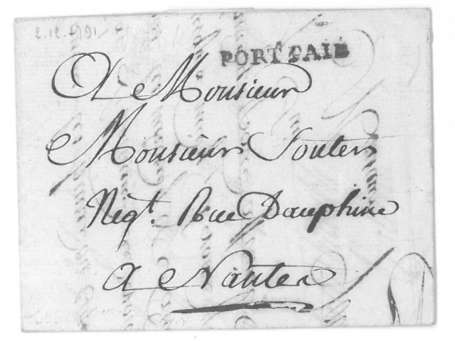 2.12.1791
PORT PAIE
A Monsieur
Monsieur Souter
Neg.t Rue Dauphine
a Nantes